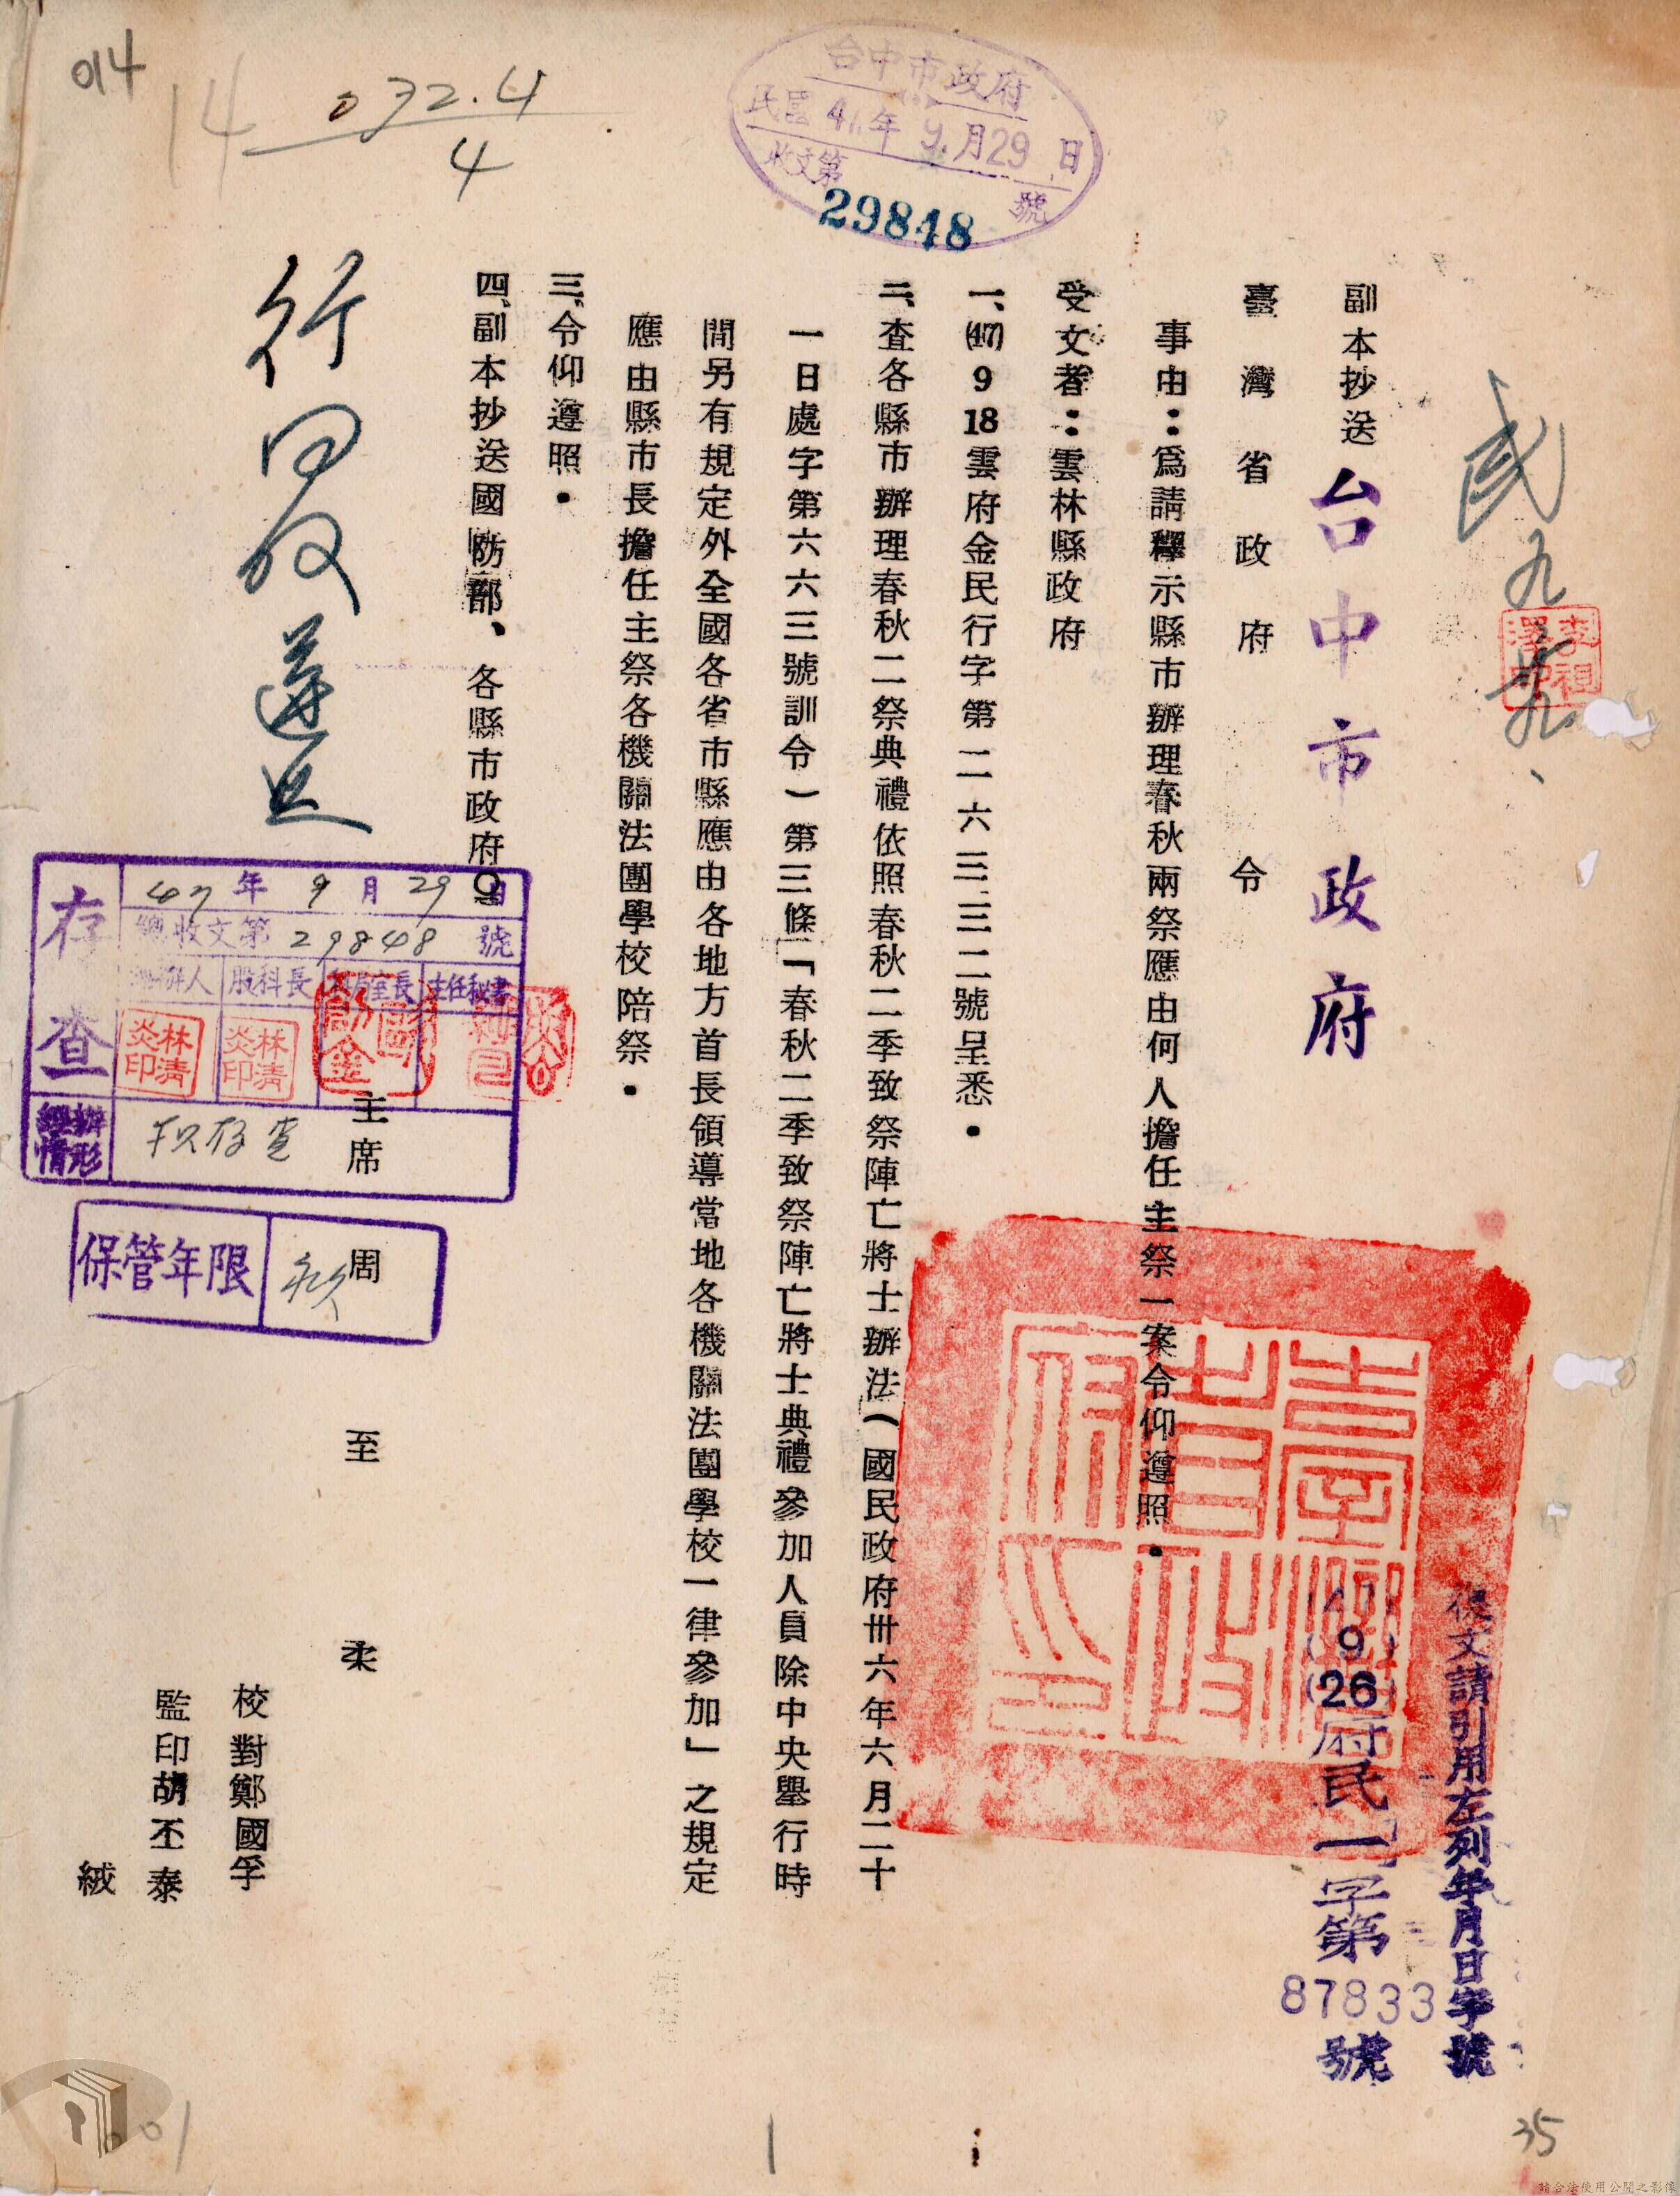 014
14
032.4
4
台中市政府
民國47年9月29日
收文第 號
29848
民
九
李祖澤印
副本抄送
台中市政府
復文請引用左列年月日字號
9
26府民一字第
87833
號
臺灣省政府令
臺灣省政府印
事由：爲請釋示縣市辦理春秋兩祭應由何人擔任主祭一案令仰遵照．
受文者：雲林縣政府
一、(47)9 18雲府金民行字第二六三三二號呈悉．
二、查各縣市辦理春秋二祭典禮依照春秋二季致祭陣亡將士辦法（國民政府卅六年六月二十
一日處字第六六三號訓令）第三條「春秋二季致祭陣亡將士典禮參加人員除中央舉行時
間另有規定外全國各省市縣應由各地方首長領導當地各機關法團學校一律參加」之規定
應由縣市長擔任主祭各機關法團學校陪祭．
三、令仰遵照．
四、副本抄送國防部、各縣市政府。
主席 周至柔
校對鄭國孚
監印胡丕泰
絨
存查
47年9月29日
總收文第29848號
承辦人 股科長 科局室長 主任秘書
林清炎印
林清炎印
辦理情形
存查
保管年限
01
35
請合法使用公開之影像